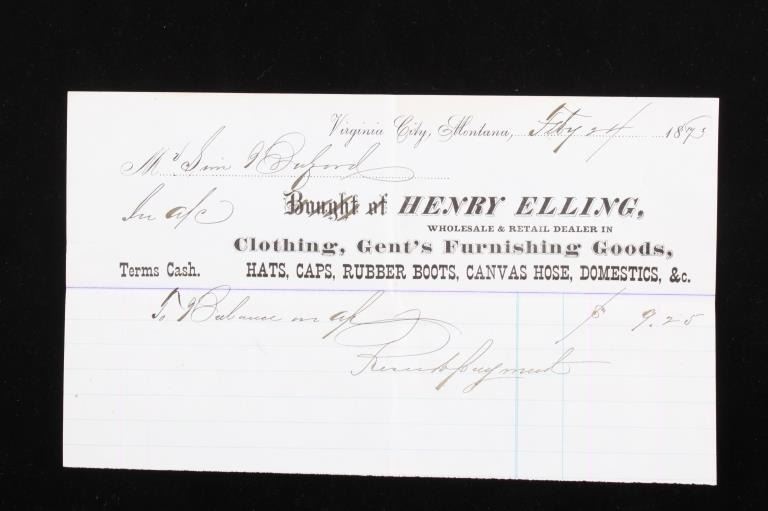 Virginia City, Montana, Feby 24 1873
Mr Sim Buford
In a/c Bought of HENRY ELLING,
WHOLESALE & RETAIL DEALER IN
Clothing, Gent's Furnishing Goods,
Terms Cash. HATS, CAPS, RUBBER BOOTS, CANVAS HOSE, DOMESTICS, &c.
To Balance on a/c $ 9.25
payment